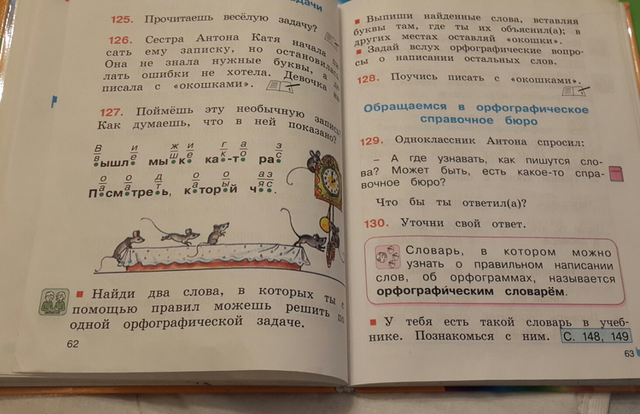 дачи
125. Прочитаешь весёлую задачу?
126. Сестра Антона Катя начала
сать ему записку, но остановила
Она не знала нужные буквы, а
лать ошибки не хотела. Девочка
писала с «окошками».
127. Поймёшь эту необычную запись
Как думаешь, что в ней показано?
В и ж и г к з
а е ш е к о с
ышл мы к ка -т ра
о о д о о аз
а а т а а яс
П см тре ь, к тор й ч .
Найди два слова, в которых ты с
помощью правил можешь решить
одной орфографической задаче.
62
Выпиши найденные слова, вставляя
буквы там, где ты их объяснил(а); в
других местах оставляй «окошки».
Задай вслух орфографические вопро-
сы о написании остальных слов.
128. Поучись писать с «окошками».
Обращаемся в орфографическое
справочное бюро
129. Одноклассник Антона спросил:
– А где узнавать, как пишутся сло-
ва? Может быть, есть какое-то спра-
вочное бюро?
Что бы ты ответил(а)?
130. Уточни свой ответ.
Словарь, в котором можно
узнать о правильном написании
слов, об орфограммах, называется
орфографи́ческим словарём.
У тебя есть такой словарь в учеб-
нике. Познакомься с ним. С. 148, 149
63